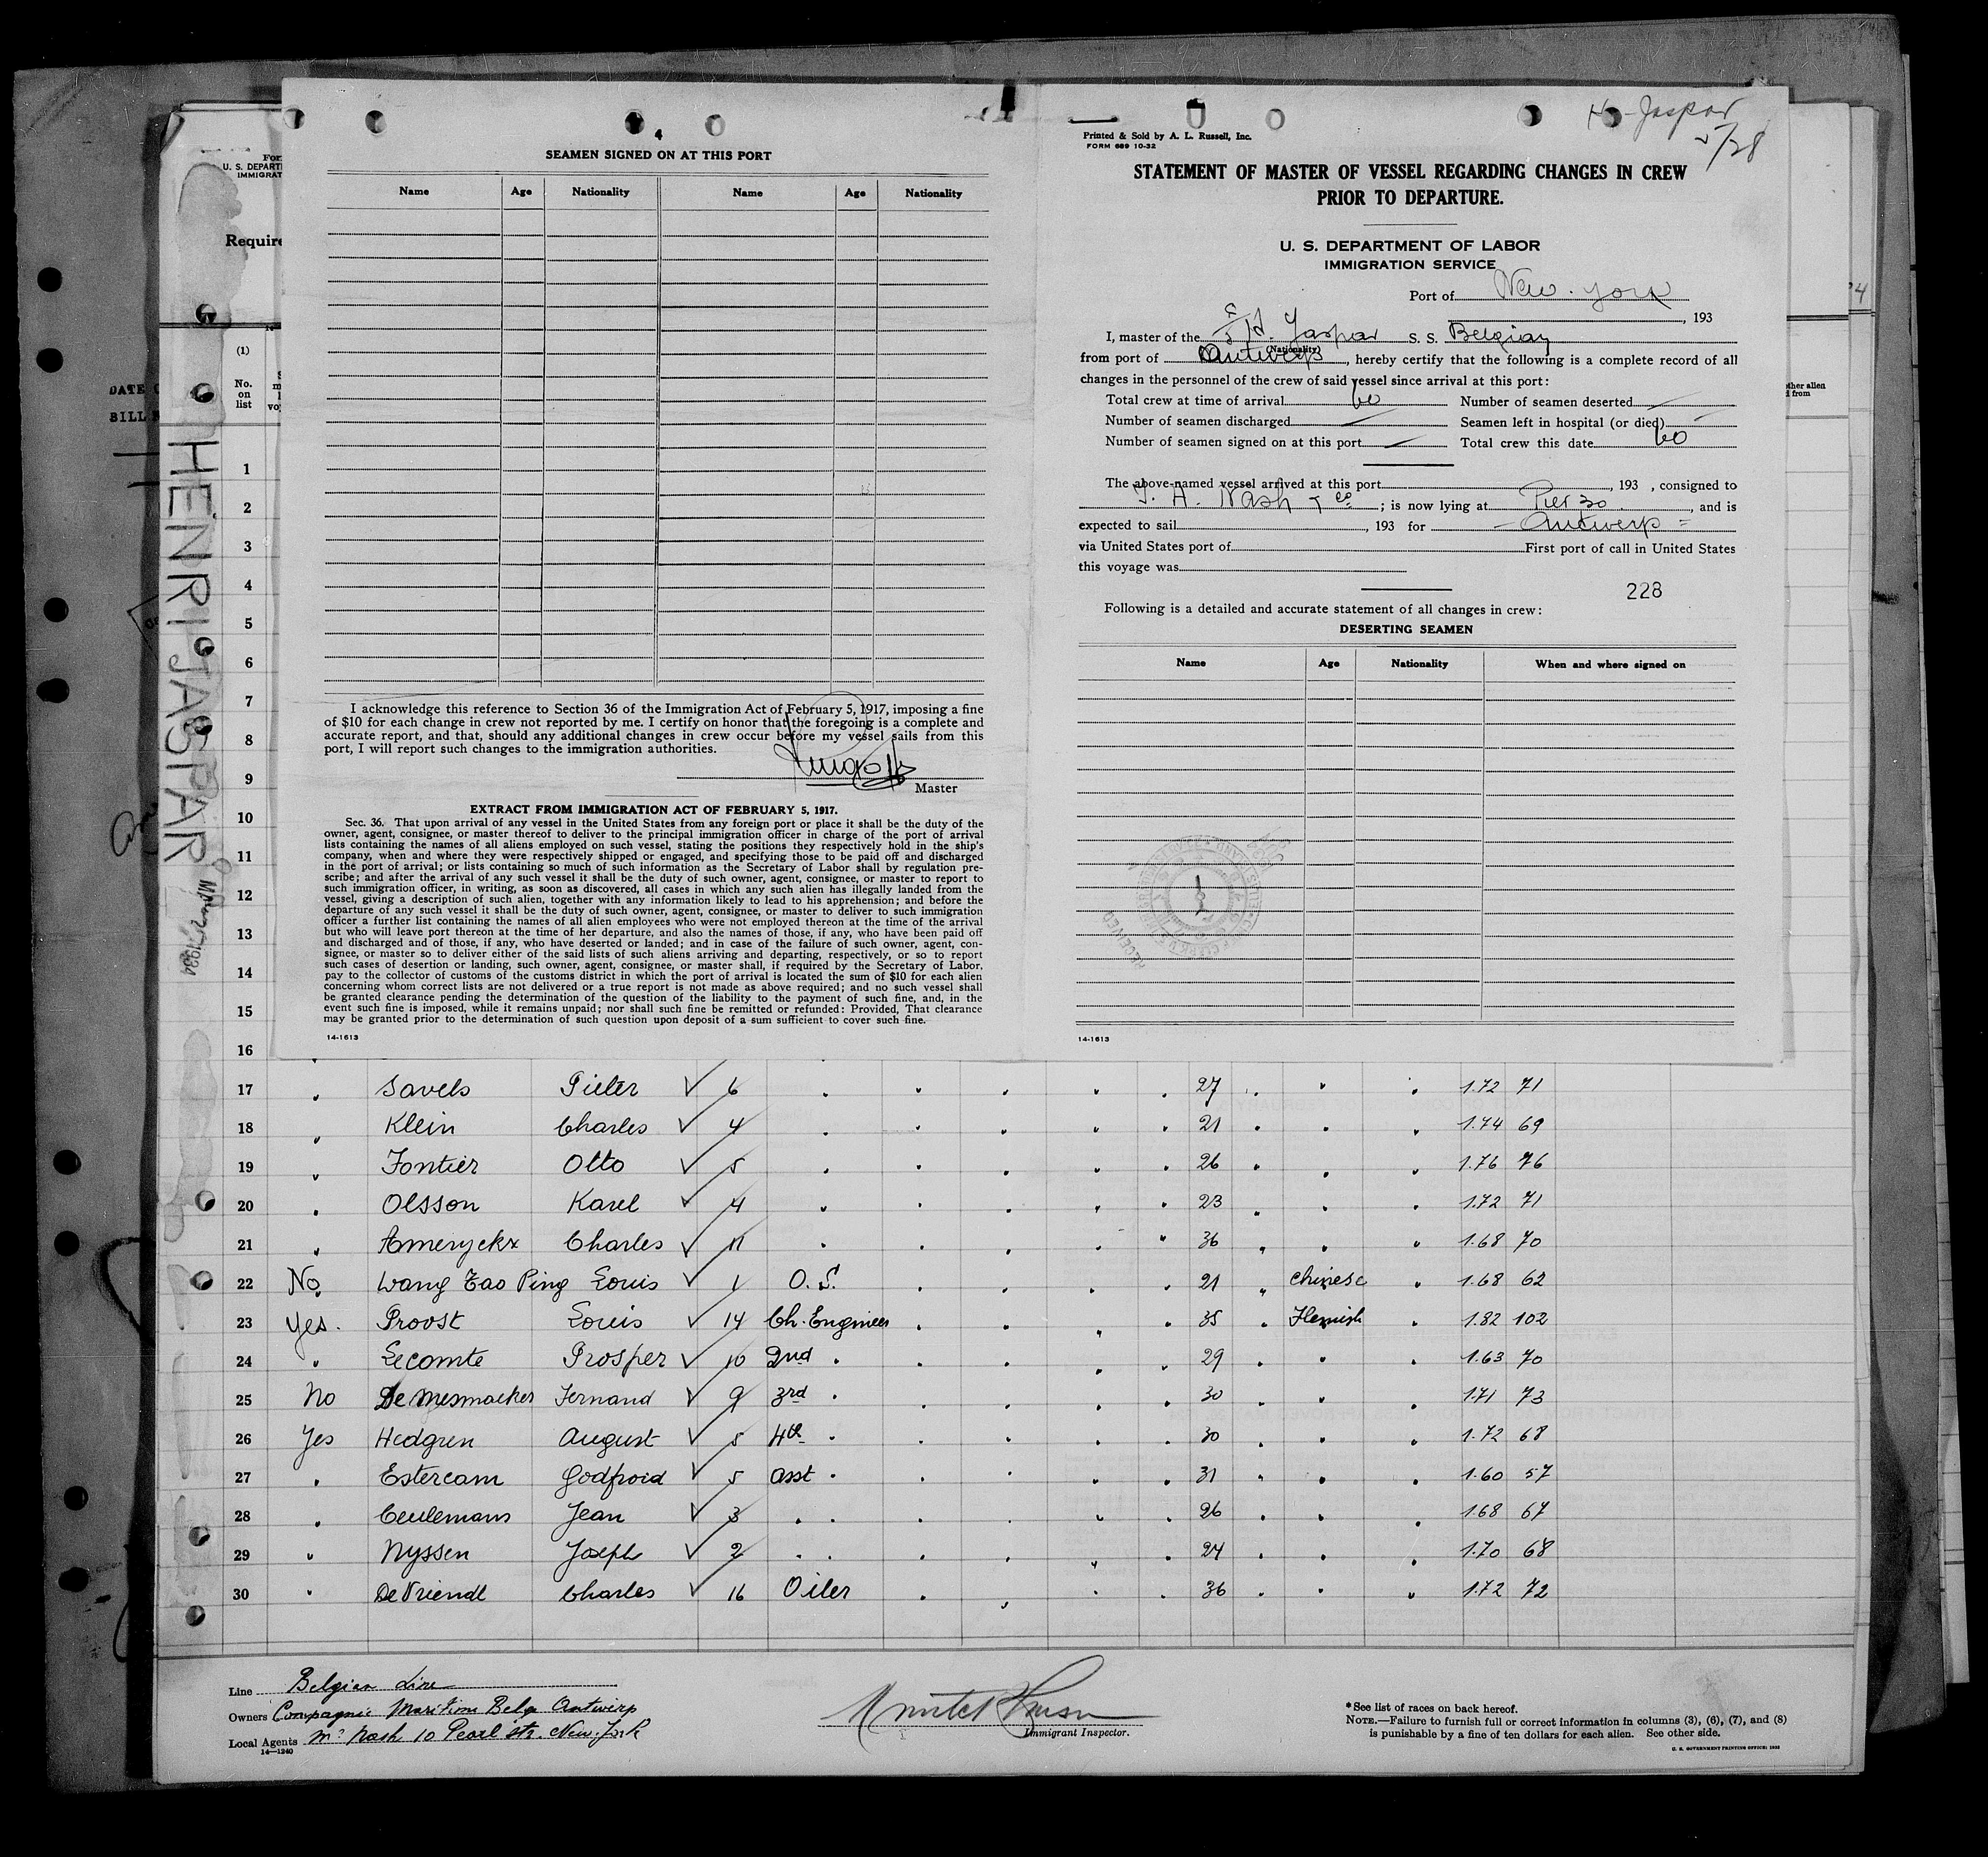 4
SEAMEN SIGNED ON AT THIS PORT
Name Age Nationality Name Age Nationality
I acknowledge this reference to Section 36 of the Immigration Act of February 5, 1917, imposing a fine
of $10 for each change in crew not reported by me. I certify on honor that the foregoing is a complete and
accurate report, and that, should any additional changes in crew occur before my vessel sails from this
port, I will report such changes to the immigration authorities.
Master
EXTRACT FROM IMMIGRATION ACT OF FEBRUARY 5, 1917.
Sec. 36. That upon arrival of any vessel in the United States from any foreign port or place it shall be the duty of the
owner, agent, consignee, or master thereof to deliver to the principal immigration officer in charge of the port of arrival
lists containing the names of all aliens employed on such vessel, stating the positions they respectively hold in the ship's
company, when and where they were respectively shipped or engaged, and specifying those to be paid off and discharged
in the port of arrival; or lists containing so much of such information as the Secretary of Labor shall by regulation pre-
scribe; and after the arrival of any such vessel it shall be the duty of such owner, agent, consignee, or master to report to
such immigration officer, in writing, as soon as discovered, all cases in which any such alien has illegally landed from the
vessel, giving a description of such alien, together with any information likely to lead to his apprehension; and before the
departure of any such vessel it shall be the duty of such owner, agent, consignee, or master to deliver to such immigration
officer a further list containing the names of all alien employees who were not employed thereon at the time of the arrival
but who will leave port thereon at the time of her departure, and also the names of those, if any, who have been paid off
and discharged and of those, if any, who have deserted or landed; and in case of the failure of such owner, agent, con-
signee, or master so to deliver either of the said lists of such aliens arriving and departing, respectively, or so to report
such cases of desertion or landing, such owner, agent, consignee, or master shall, if required by the Secretary of Labor,
pay to the collector of customs of the customs district in which the port of arrival is located the sum of $10 for each alien
concerning whom correct lists are not delivered or a true report is not made as above required; and no such vessel shall
be granted clearance pending the determination of the question of the liability to the payment of such fine, and, in the
event such fine is imposed, while it remains unpaid; nor shall such fine be remitted or refunded: Provided, That clearance
may be granted prior to the determination of such question upon deposit of a sum sufficient to cover such fine.
14-1613
H. Jaspar
5/28
Printed & Sold by A. L. Russell, Inc.
FORM 689 10-32
STATEMENT OF MASTER OF VESSEL REGARDING CHANGES IN CREW
PRIOR TO DEPARTURE.
U. S. DEPARTMENT OF LABOR
IMMIGRATION SERVICE
Port of New. York
, 193
I, master of the H. Jaspar S. S. Belgian
(Nationality)
from port of Antwerp, hereby certify that the following is a complete record of all
changes in the personnel of the crew of said vessel since arrival at this port:
Total crew at time of arrival 60 Number of seamen deserted
Number of seamen discharged Seamen left in hospital (or died)
Number of seamen signed on at this port Total crew this date 60
The above-named vessel arrived at this port , 193 , consigned to
T. A. Nash & Co ; is now lying at Pier 30 , and is
expected to sail , 193 for Antwerp
via United States port of First port of call in United States
this voyage was
228
Following is a detailed and accurate statement of all changes in crew:
DESERTING SEAMEN
Name Age Nationality When and where signed on
RECEIVED
14-1613
U. S. DEPART
IMMIGRAT
Require
(1)
No.
on
list
HENRI JASPAR
1934
1
2
3
4
5
6
7
8
9
10
11
12
13
14
15
16
17 Savels Pieter 6 27 1.72 71
18 Klein Charles 4 21 1.74 69
19 Fontier Otto 5 26 1.76 76
20 Olsson Karel 4 23 1.72 71
21 Ameryckx Charles 11 36 1.68 70
22 No Wang Tao Ping Louis 1 O.S. 21 Chinese 1.68 62
23 Yes. Provst Louis 14 Ch. Engineer 35 Flemish 1.82 102
24 Lecomte Prosper 10 2nd 29 1.63 70
25 No De Mesmaeker Fernand 9 3rd 30 1.71 73
26 Yes Hedgren August 5 4th 30 1.72 68
27 Estercam Godfroid 5 asst 31 1.60 57
28 Ceulemans Jean 3 26 1.68 67
29 Nyssen Joseph 2 24 1.70 68
30 De Vriendt Charles 16 Oiler 36 1.72 72
Line Belgian Line
Owners Compagnie Maritim Belg Antwerp
Local Agents Mr Nash 10 Pearl str. New-York
14-1240
Immigrant Inspector.
*See list of races on back hereof.
NOTE.—Failure to furnish full or correct information in columns (3), (6), (7), and (8)
is punishable by a fine of ten dollars for each alien. See other side.
U. S. GOVERNMENT PRINTING OFFICE: 1932